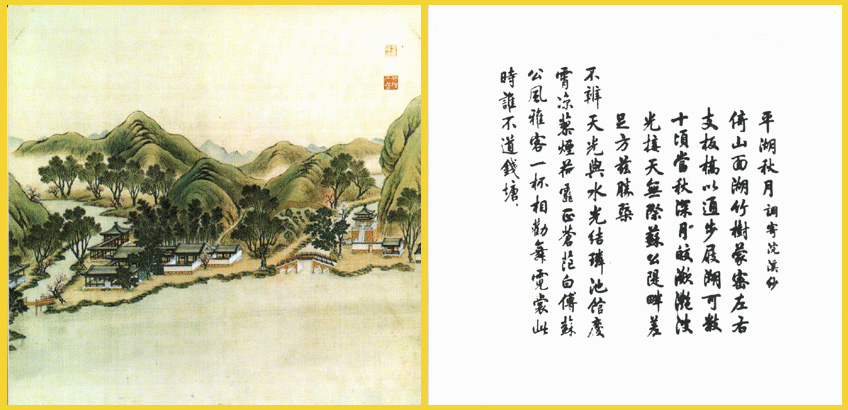 平湖秋月 調寄浣溪紗
倚山面湖竹樹蒙密左右
支板橋以通步屧湖可數
十頃當秋深月皎瀲灩波
光接天無際蘇公隄畔差
足方茲勝槩
不辨天光與水光結璘池館慶
霄涼蓼煙荷露正蒼茫白傅蘇
公風雅客一杯相勸舞霓裳此
時誰不道錢塘、